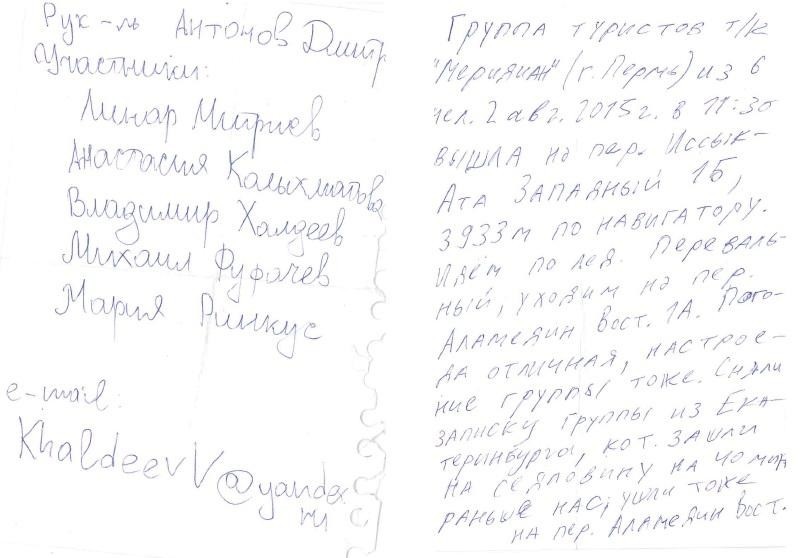 Рук-ль Антонов Дмитр
Участники:
Линар Митриев
Анастасия Калыхматова
Владимир Халдеев
Михаил Фуфачев
Мария Ринкус
e-mail:
KhaldeevV@yandex.
ru
Группа туристов т/к
"Меридиан" (г. Пермь) из 6
чел. 2 авг. 2015г. в 11:30
вышла на пер. Иссык-
Ата Западный 1Б,
3933м по навигатору.
Идём по лед. Переваль-
ный, уходим на пер.
Аламедин Вост. 1А. Пого-
да отличная, настрое-
ние группы тоже. Сняли
записку группы из Ека-
теринбурга, кот. зашли
на седловину на 40 мин
раньше нас, ушли тоже
на пер. Аламедин Вост.